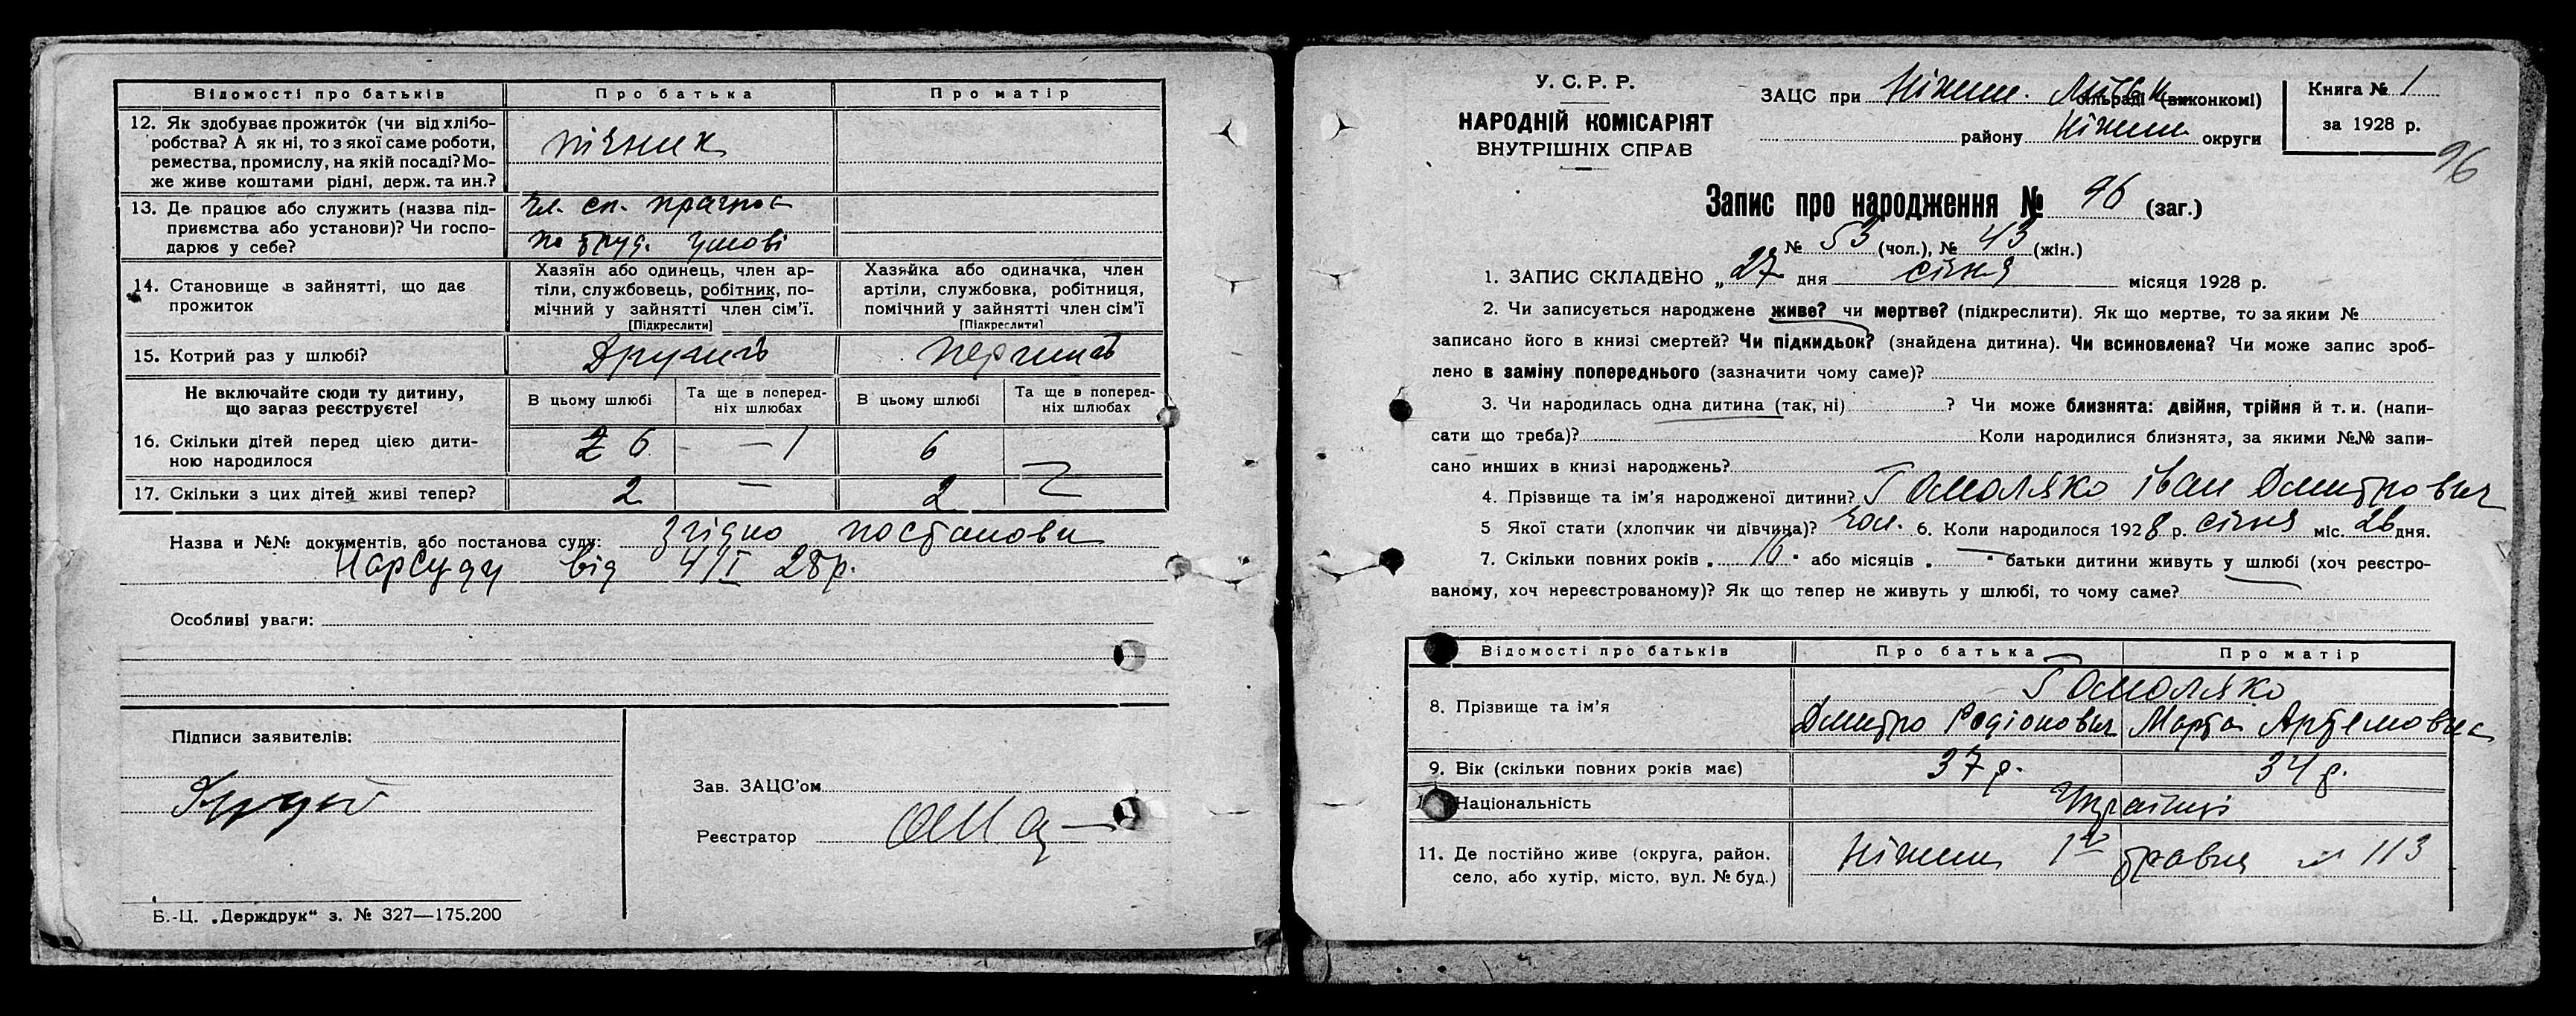 Відомості про батьків Про батька Про матір
12. Як здобуває прожиток (чи від хлібо-
робства? А як ні, то з якої саме роботи,
ремества, промислу, на якій посаді? Мо-
же живе коштами рідні, держ. та ин.?
пічник
13. Де працює або служить (назва під-
приємства або установи)? Чи госпо-
дарює у себе?
чл. сп.
по труд. умові
14. Становище в зайнятті, що дає
прожиток
Хазяїн або одинець, член ар-
тіли, службовець, робітник, по-
мічний у зайнятті член сім'ї.
[Підкреслити]
Хазяйка або одиначка, член
артіли, службовка, робітниця,
помічний у зайнятті член сім'ї
[Підкреслити]
15. Котрий раз у шлюбі? Другий Перший
Не включайте сюди ту дитину,
що зараз реєструєте!
В цьому шлюбі Та ще в поперед-
ніх шлюбах В цьому шлюбі Та ще в поперед-
ніх шлюбах
16. Скільки дітей перед цією дити-
ною народилося
6 — 1 6
17. Скільки з цих дітей живі тепер? 2 — 2
Назва и №№ документів, або постанова суду: згідно постанови
Нарсуду від 4/I 28р.
Особливі уваги:
Підписи заявителів:
Зав. ЗАЦС'ом
Реєстратор
Б.-Ц. „Держдрук“ з. № 327—175.200
У. С. Р. Р.
НАРОДНІЙ КОМІСАРІЯТ
ВНУТРІШНІХ СПРАВ
ЗАЦС при Ніжин. сільраді (виконкомі)
району Ніжин округи
Книга № 1
за 1928 р.
96
Запис про народження № 96 (заг.)
№ 53 (чол.), № 43 (жін.)
1. ЗАПИС СКЛАДЕНО „27 дня січня місяця 1928 р.
2. Чи записується народжене живе? чи мертве? (підкреслити). Як що мертве, то за яким №
записано його в книзі смертей? Чи підкидьок? (знайдена дитина). Чи всиновлена? Чи може запис зроб-
лено в заміну попереднього (зазначити чому саме)?
3. Чи народилась одна дитина (так, ні) ? Чи може близнята: двійня, трійня й т. и. (напи-
сати що треба)? Коли народилися близнята, за якими №№ запи-
сано инших в книзі народжень?
4. Прізвище та ім'я народженої дитини? Гомоляко Іван Дмитрович
5 Якої стати (хлопчик чи дівчина)? чол. 6. Коли народилося 1928 р. січня міс. 26 дня.
7. Скільки повних років „ 16 “ або місяців „ — “ батьки дитини живуть у шлюбі (хоч реєстро-
ваному, хоч нереєстрованому)? Як що тепер не живуть у шлюбі, то чому саме?
Відомості про батьків Про батька Про матір
Гомоляко
8. Прізвище та ім'я
Дмитро Родіонович Марта Артемовна
9. Вік (скільки повних років має) 37 р. 34 р.
Національність Українці
11. Де постійно живе (округа, район.
село, або хутір, місто, вул. № буд.)
Ніжин 1го травня № 113